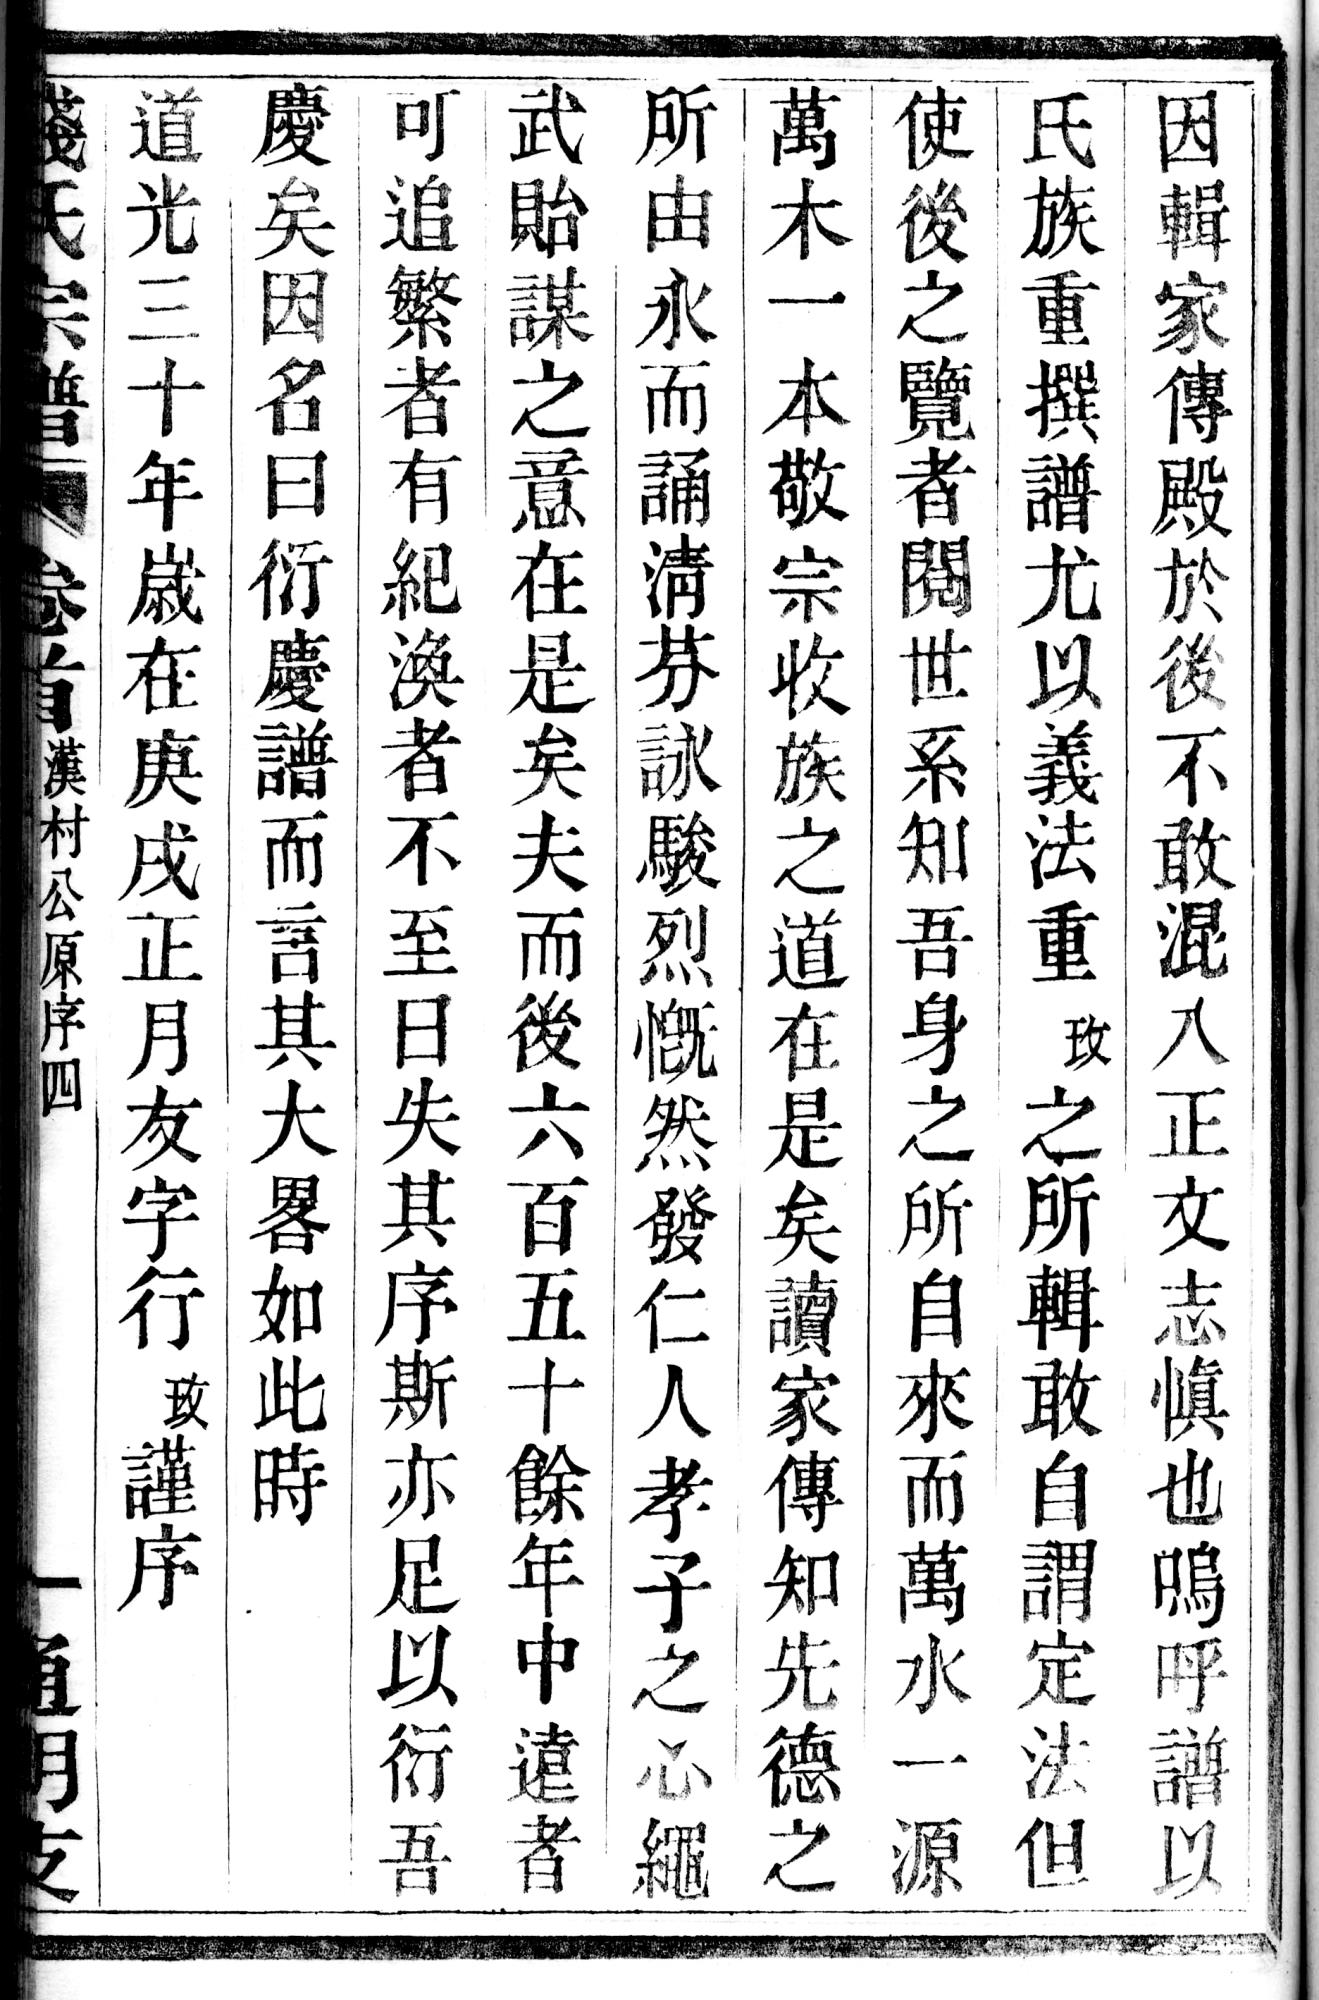 因輯家傳殿於後不敢混入正文志慎也嗚呼譜以
氏族重撰譜尤以義法重玫之所輯敢自謂定法但
使後之覽者閱世系知吾身之所自來而萬水一源
萬木一本敬宗收族之道在是矣讀家傳知先德之
所由永而誦清芬詠駿烈慨然發仁人孝子之心繩
武貽謀之意在是矣夫而後六百五十餘年中遠者
可追繁者有紀渙者不至日失其序斯亦足以衍吾
慶矣因名曰衍慶譜而言其大畧如此時
道光三十年歲在庚戌正月友字行玫謹序
錢氏宗譜 卷首 漢村公原序四 一 通明支